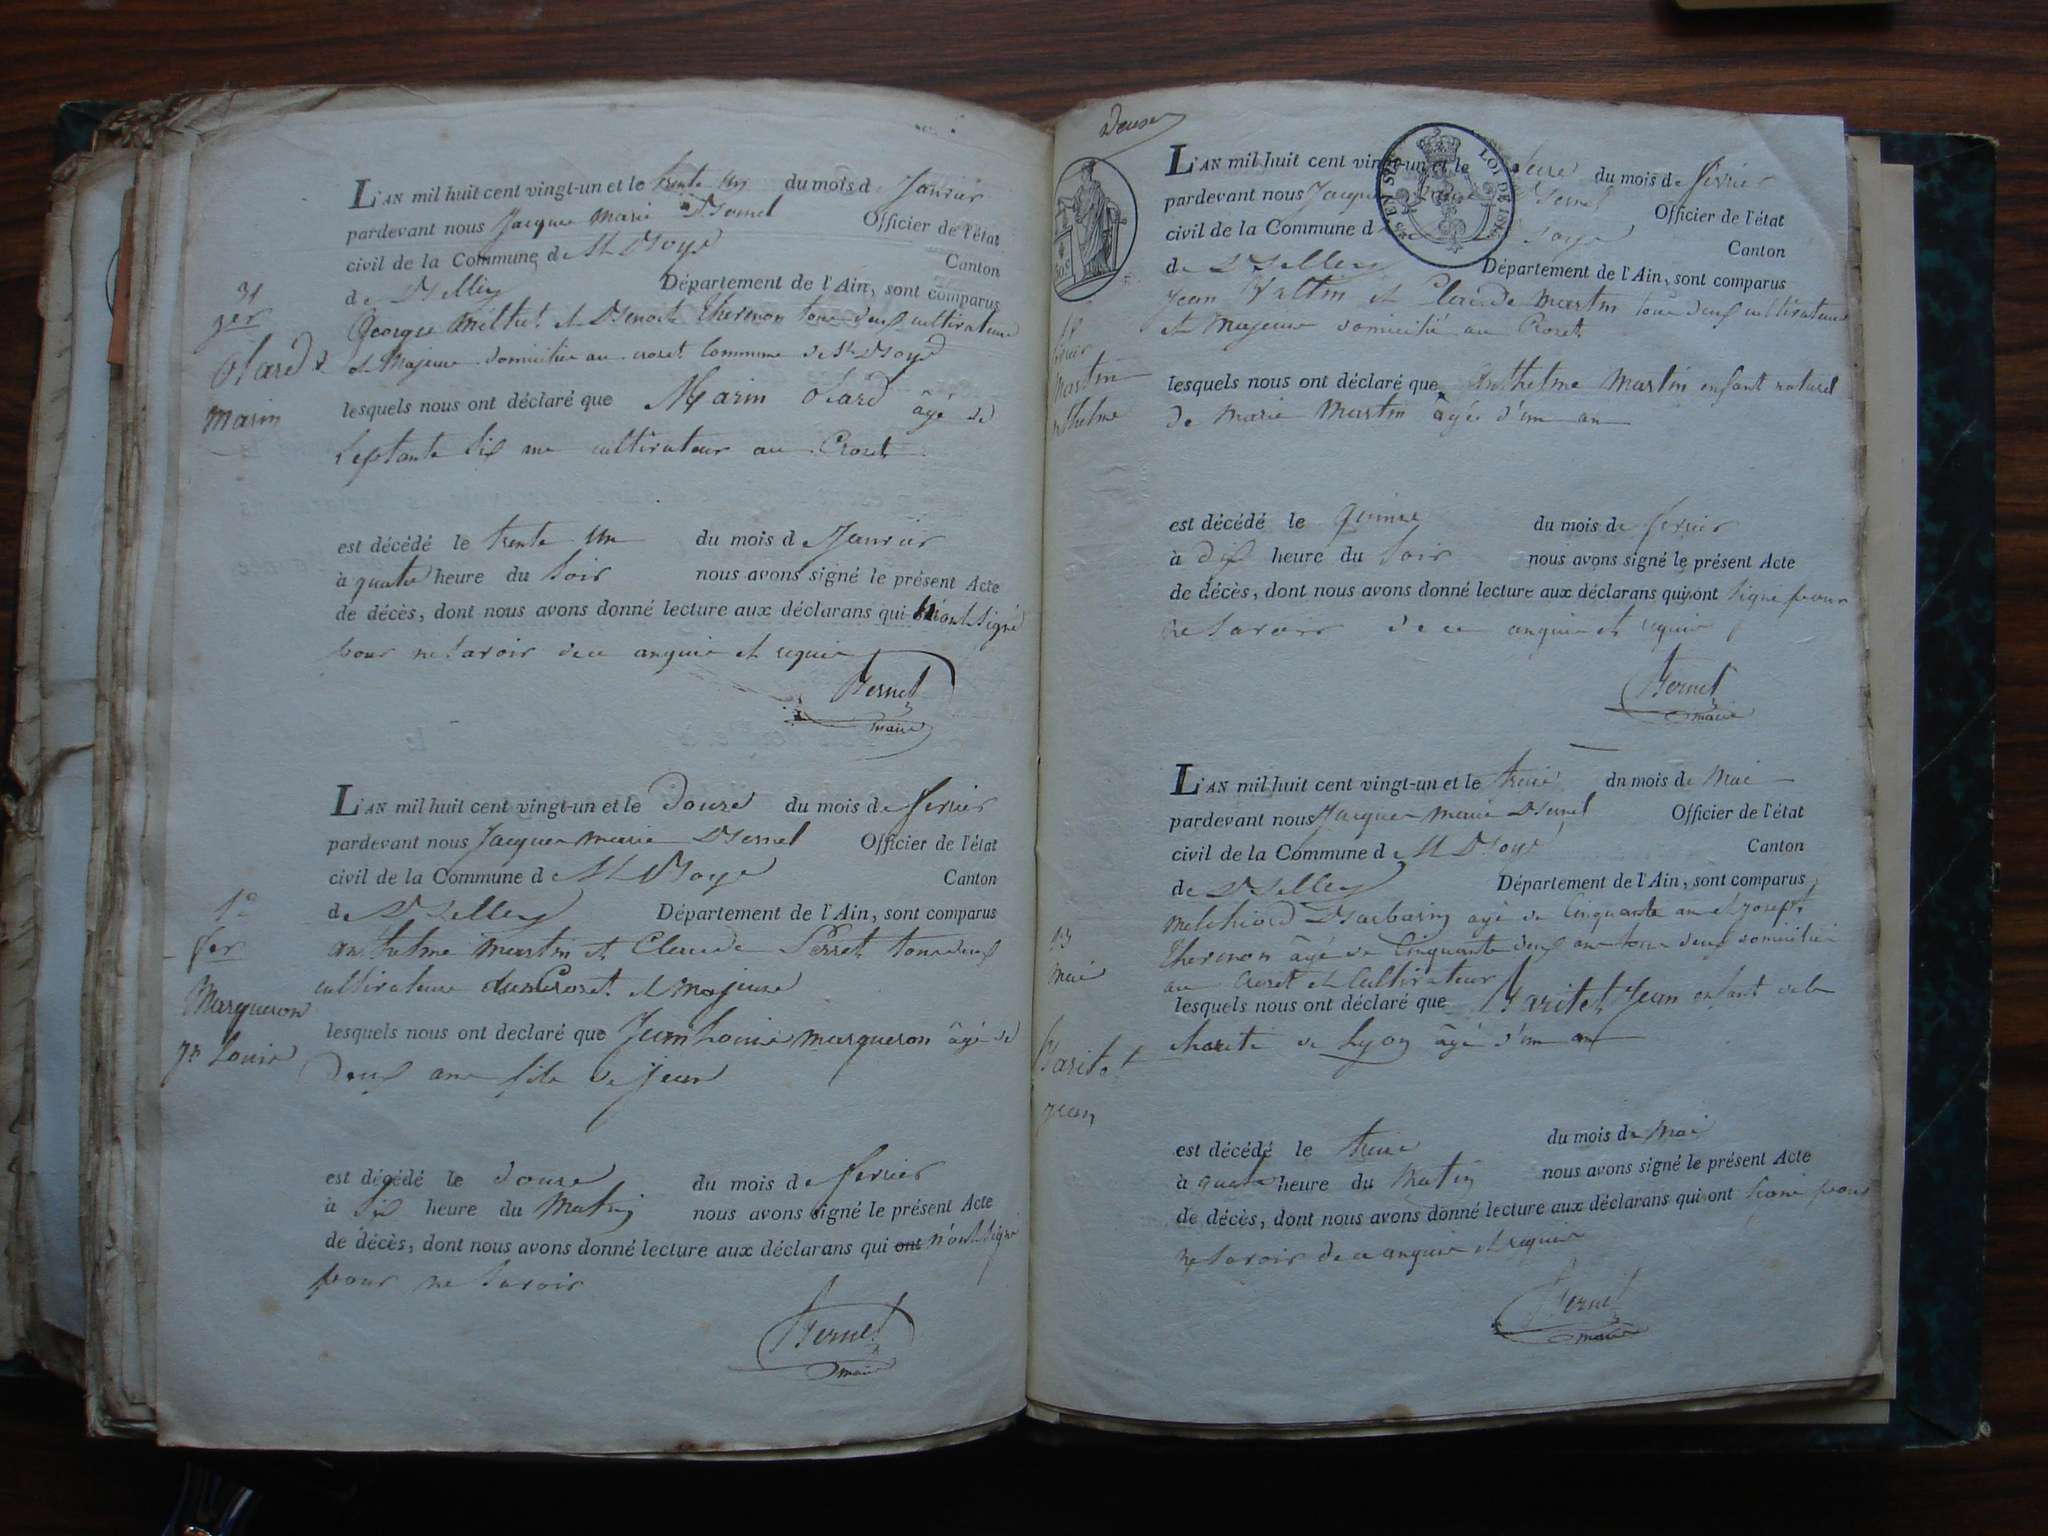 L'AN mil huit cent vingt-un et le trente un du mois de Janvier
pardevant nous Jacque Marie Bernel Officier de l'état
civil de la Commune de St Boye Canton
de Belley Département de l'Ain, sont comparus
George Milliet et Benoit Thevenon tous deux cultivateurs
et Majeurs domiciliés au crozet Commune de St Boye
lesquels nous ont déclaré que Marin âgé de
septante six ans cultivateur au Crozet
est décédé le trente un du mois d Janvier
à quatre heure du soir nous avons signé le présent Acte
de décès, dont nous avons donné lecture aux déclarans qui n'ont signé
pour ne savoir de ce anquis et requis
Bernel
maire
31
Marin
L'AN mil huit cent vingt-un et le douze du mois de fevrier
pardevant nous Jacque marie Bernel Officier de l'état
civil de la Commune d St Boye Canton
de Belley Département de l'Ain, sont comparus
anthelme martin et Claude Perret tous deux
cultivateurs Crozet et majeurs
lesquels nous ont declaré que Jean Louis marqueron âgé de
Deux ans fils de jean
est décédé le douze du mois de fevrier
à six heure du Matin nous avons signé le présent Acte
de décès, dont nous avons donné lecture aux déclarans qui ont n'ont signé
pour ne savoir
Bernel
maire
fer
Marqueron
jn Louis
deux
EN SUS
LOI DE 1816
L'AN mil huit cent vingt-un et le du mois de fevrier
pardevant nous Jacque Bernel Officier de l'état
civil de la Commune d Boye Canton
de Belley Département de l'Ain, sont comparus
Jean Valtin et Claude martin tous deux cultivateurs
et Majeurs domiciliés au Crozet
lesquels nous ont déclaré que Anthelme Martin enfant naturel
de Marie Martin âgé d'un an
est décédé le quinze du mois de fevrier
à dix heure du soir nous avons signé le présent Acte
de décès, dont nous avons donné lecture aux déclarans qui ont signé pour
ne savoir de ce anquis et requis
Bernel
maire
Martin
L'AN mil huit cent vingt-un et le treize dn mois de Mai
pardevant nous Jacque marie Bernel Officier de l'état
civil de la Commune d St Boye Canton
de Belley Département de l'Ain, sont comparus
Melchiord Barbarin âgé de Cinquante an et joseph
Thevenon âgé de Cinquante deux ans tous deux domicilié
au Crozet et Cultivateur
lesquels nous ont déclaré que Baritet Jean enfant de la
charité de Lyon âgé d'un an
est décédé le treize du mois de Mai
à quatre heure du Matin nous avons signé le présent Acte
de décès, dont nous avons donné lecture aux déclarans qui ont signé pour
ne savoir de ce anquis et requis
Bernel
maire
13
mai
Baritet
jean